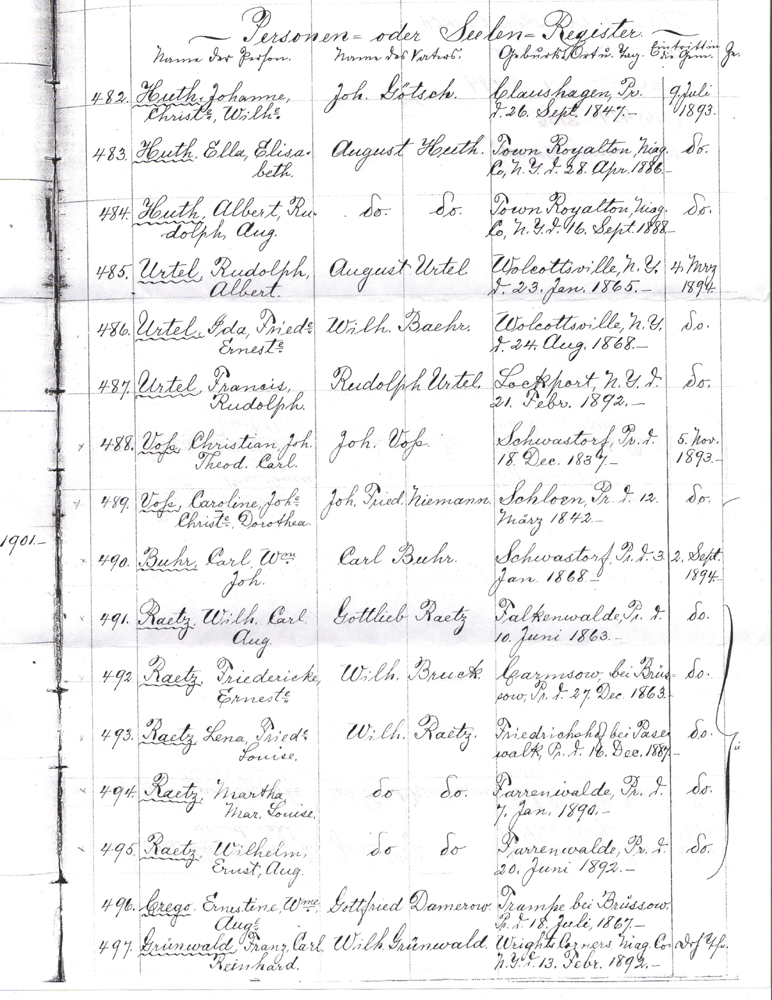 Personen= oder Seelen=Register.
Name der Person. Name des Vaters. Geburts Ort u. Tag. Eintritt in die Gem. Ge.
482. Huth, Johanne, Joh. Götsch. Claushagen, Pr. 9. Juli
Christe, Wilhe. d. 26. Sept. 1847.— 1893.
483. Huth, Ella, Elisa- August Huth. Town Royalton, Niag. do.
beth. Co, N.Y. d. 28. Apr. 1886.—
484. Huth, Albert, Ru- do. do. Town Royalton, Niag. do.
dolph, Aug. Co, N.Y. d. 16. Sept. 1888.—
485. Urtel, Rudolph, August Urtel Wolcottsville, N.Y. 4. Mrz
Albert. d. 23. Jan. 1865.— 1894.
486. Urtel, Ida, Friede Wilh. Baehr. Wolcottsville, N.Y. do.
Erneste. d. 24. Aug. 1868.—
487. Urtel, Francis, Rudolph Urtel. Lockport, N.Y. d. do.
Rudolph. 21. Febr. 1892.—
488. Voß, Christian, Joh. Joh. Voß. Schwastorf, Pr. d. 5. Nov.
Theod. Carl. 18. Dec. 1837.— 1893.—
489. Voß, Caroline, Johe Joh. Fried. Niemann. Schloen, Pr. d. 12. do.
Christe, Dorothea. März 1842.—
1901.—
490. Buhr, Carl, Wm Carl Buhr. Schwastorf, Pr. d. 3. 2. Sept.
Joh. Jan. 1868.— 1894.
491. Raetz, Wilh. Carl Gottlieb Raetz Falkenwalde, Pr. d. do.
Aug. 10. Juni 1863.—
492. Raetz, Friedericke, Wilh. Bruck. Carmsow, bei Brüs- do.
Erneste. sow, Pr. d. 27. Dec. 1863.
493. Raetz, Lena, Friede Wilh. Raetz. Friedrichshof bei Pase- do.
Louise. walk, Pr. d. 16. Dec. 1887.
494. Raetz, Martha do do. Parrenwalde, Pr. d. do.
Mar. Louise. 7. Jan. 1890.—
495. Raetz, Wilhelm, do do Parrenwalde, Pr. d. do.
Ernst, Aug. 20. Juni 1892.—
496. Crego, Ernestine, Wme. Gottfried Damerow. Trampe bei Brüssow.
Auge Pr. d. 18. Juli, 1867.—
497. Grünwald, Franz, Carl Wilh. Grünwald. Wrights Corners Niag. Co
Reinhard. N.Y. d. 13. Febr. 1892.—